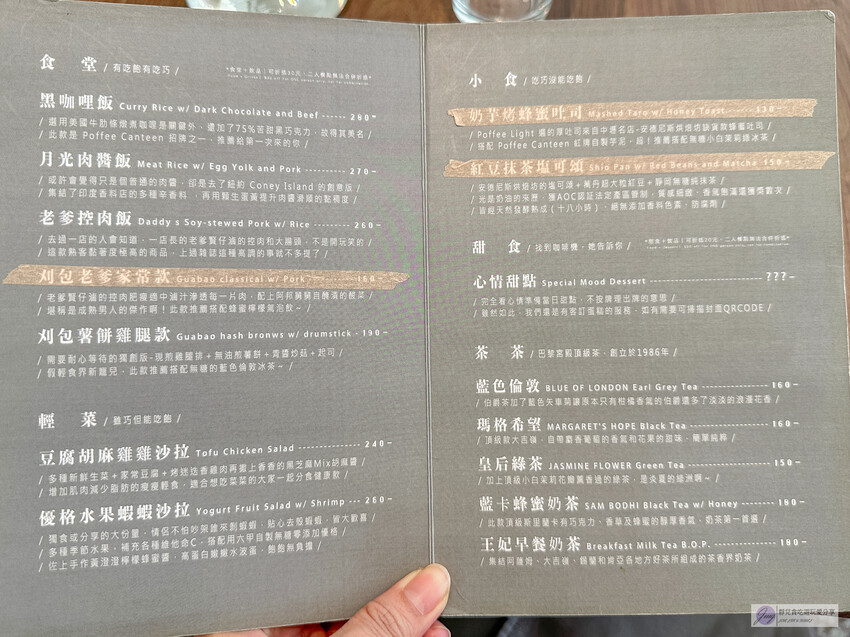 食 堂 / 有吃飽有吃巧 /
黑咖哩飯 Curry Rice w/ Dark Chocolate and Beef ------ 280-
/ 選用美國牛肋條燉煮咖哩是關鍵外，還加了75%苦甜黑巧克力，故得其美名 /
/ 此款是 Poffee Canteen 招牌之一，推薦給第一次來的你 /
月光肉醬飯 Meat Rice w/ Egg Yolk and Pork ---------- 270-
/ 或許會覺得只是個普通的肉醬，卻是去了紐約 Coney Island 的創意版 /
/ 集結了印度香料店的多種辛香料，再用顆生蛋黃提升肉醬滑順的黏稠度 /
老爹控肉飯 Daddy's Soy-stewed Pork w/ Rice --------- 260-
/ 去過一店的人會知道，一店長的老爹賢仔滷的控肉和大腸頭，不是開玩笑的 /
/ 這款熟客黏著度極高的商品，上過雜誌這種高調的事就不多提了 /
刈包老爹家常款 Guabao classical w/ Pork ---------- 160-
/ 老爹賢仔滷的控肉肥瘦適中滷汁滲透每一片肉，配上阿邦舅舅自醃漬的酸菜 /
/ 堪稱是成熟男人的傑作啊！此款推薦搭配蜂蜜檸檬氣泡飲~ /
刈包薯餅雞腿款 Guabao hash bronws w/ drumstick - 190-
/ 需要耐心等待的獨創版-現煎雞腿排+無油煎薯餅+青醬炒菇+起司 /
/ 假輕食界新寵兒，此款推薦搭配無糖的藍色倫敦冰茶~ /
輕 菜 / 雖巧但能吃飽 /
豆腐胡麻雞雞沙拉 Tofu Chicken Salad ------------ 240-
/ 多種新鮮生菜+家常豆腐+烤迷迭香雞肉再擱上香香的黑芝麻Mix胡麻醬 /
/ 增加肌肉減少脂肪的瘦瘦輕食，適合想吃菜菜的大家一起分食健康款 /
優格水果蝦蝦沙拉 Yogurt Fruit Salad w/ Shrimp --- 260-
/ 獨食或分享的大份量，情侶不怕吵架誰來剝蝦蝦，貼心去殼蝦蝦，皆大歡喜 /
/ 多種季節水果，補充各種維他命C，搭配用六甲自製無糖零添加優格 /
/ 佐上手作黃澄澄檸檬蜂蜜醬，高蛋白嫩嫩水波蛋，飽飽無負擔 /
小 食 / 吃巧沒能吃飽 /
奶芋烤蜂蜜吐司 Mashed Taro w/ Honey Toast ------ 130-
/ Poffee Light 選的厚吐司來自中壢名店-安德尼斯烘焙坊鎮資款蜂蜜吐司 /
/ 搭配 Poffee Canteen 紅牌自製芋泥，給！推薦搭配無糖小白茉莉綠冰茶 /
紅豆抹茶塩可頌 Shio Pan w/ Red Beans and Matcha 150-
/ 安德尼斯烘焙坊的塩可頌+萬丹超大粒紅豆+靜岡無糖純抹茶 /
/ 光是奶油的來歷，獲AOC認証法定產區管制，質感細緻、香氣飽滿還獲獎數次 /
/ 皆經天然發酵熟成（十八小時），絕無添加香料色素、防腐劑 /
甜 食 / 找到咖啡機，她告訴你 /
心情甜點 Special Mood Dessert ------------------- ???-
/ 完全看心情準備當日甜點，不按牌理出牌的意思 /
/ 雖然如此，我們還是有客訂蛋糕的服務，如有需要可掃描封面QRCODE /
茶 茶 / 巴黎宮殿頂級茶，創立於1986年 /
藍色倫敦 BLUE OF LONDON Earl Grey Tea ---------------- 160-
/ 伯爵茶加了藍色矢車菊讓原本只有柑橘香氣的伯爵還多了淡淡的浪漫花香
瑪格希望 MARGARET'S HOPE Black Tea ------------------- 160-
/ 頂級款大吉嶺，自帶麝香葡萄的香氣和花果的甜味，簡單純粹 /
皇后綠茶 JASMINE FLOWER Green Tea -------------------- 150-
/ 加上頂級小白茉莉花簡單香過的綠茶，是炎夏的綠洲啊~ /
藍卡蜂蜜奶茶 SAM BODHI Black Tea w/ Honey --------- 180-
/ 此款頂級斯里蘭卡有巧克力、香草及蜂蜜的醇厚香氣，奶茶第一首選 /
王妃早餐奶茶 Breakfast Milk Tea B.O.P. --------------- 180-
/ 集結阿薩姆、大吉嶺、錫蘭和肯亞各地方好茶所組成的茶香界奶茶 /